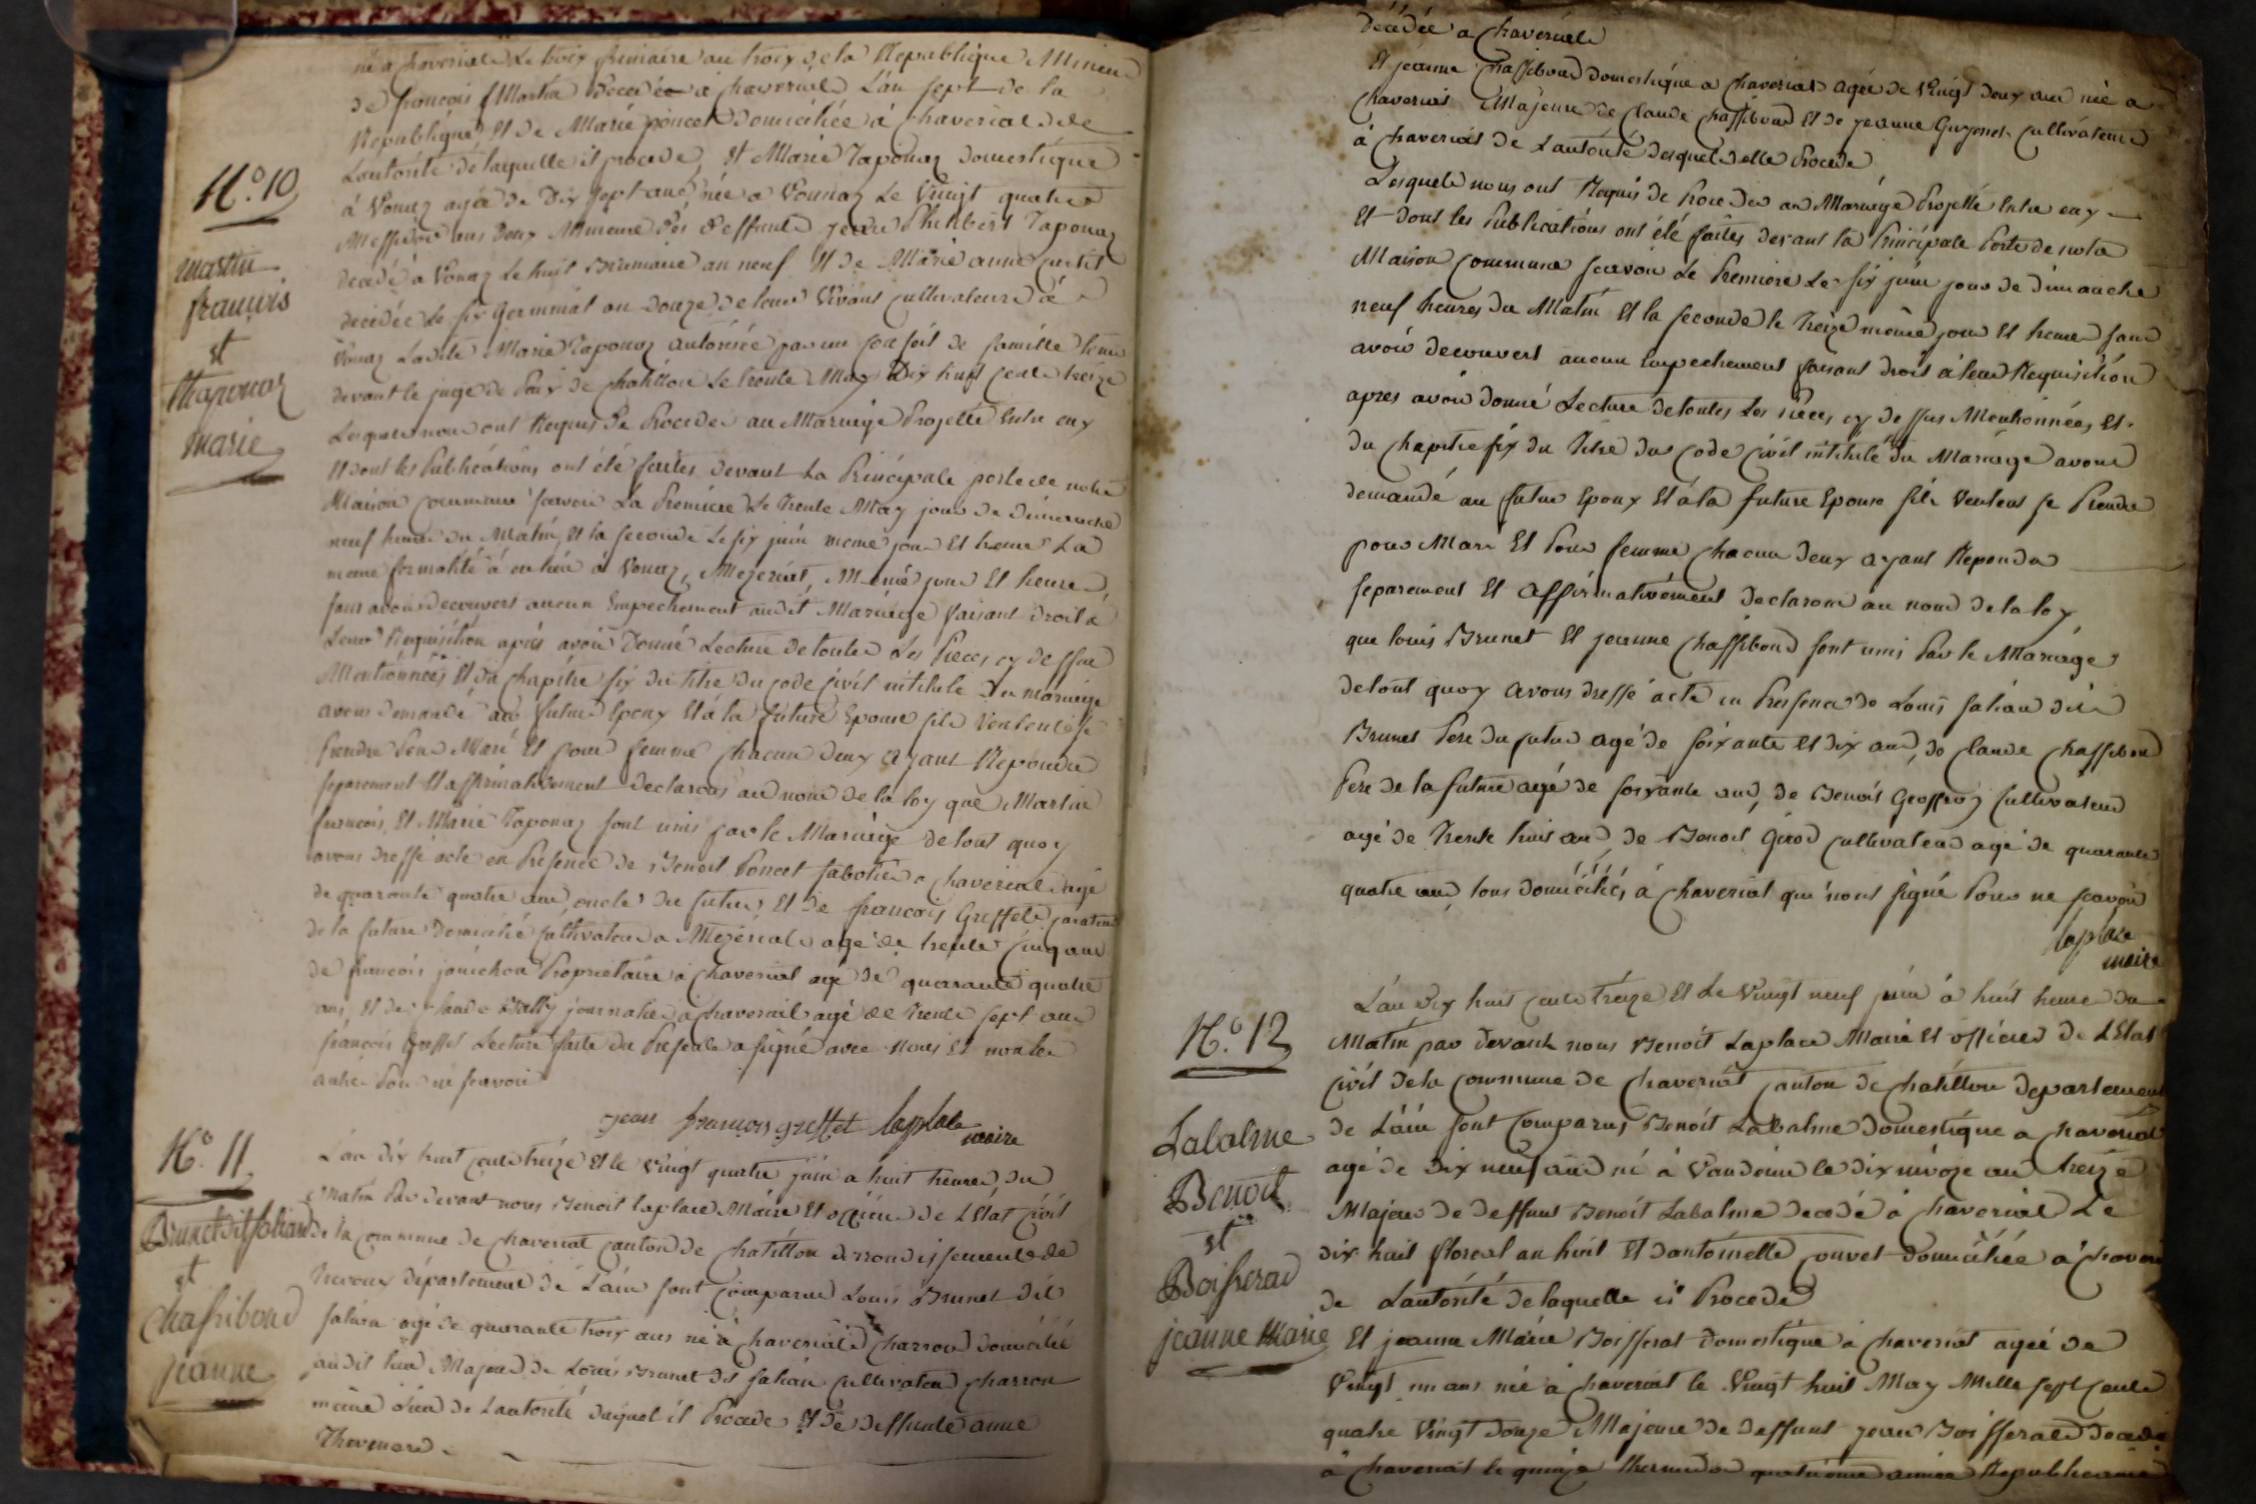 né a Chaveriat Le trois frimaire an trois de la Republique Mineur
de francois Martin decedée a Chaveriat L'an sept de la
Republique, Et de Marie poncet domiciliée à Chaveriat de
L'autorité de laquelle il procede, Et Marie Taponaz domestique
à Vonnaz agée de Dix sept ans, née a Vonnaz Le Vingt quatre
Messidor ans Deux Mineure des deffunts jean Philibert Taponaz
decedé à Vonaz Le huit Brumaire an neuf Et de Marie anne
decedée Le six Germinal an Douze de leurs Vivans Cultivateurs à
Vonaz Ladite Marie Taponaz autorisée par un conseil de famille tenu
devant le juge de Paix de Chatillon Le trente May Dix huit cent treize
Lesquels nous ont Requis De Proceder au Mariage Projetté Entre eux
Et dont les Publications ont été faites devant La Principale porte de notre
Maison Commune scavoir La Premiere Le Trente May jour de dimanche
neuf heures du Matin, Et la seconde Le six juin meme jour Et heure La
meme formalité à eu lieu à Vonaz, Mezeriat, Meme jour Et heure,
sans avoir decouvert aucun Empechement audit Mariage faisant droit à
Leurs Requisition après avoir Donné Lecture de toutes Les Pieces cy dessus
Mentionnées Et du Chapitre six du titre du code Civil intitulé Du mariage
avons demandé au futur Epoux Et à la future Epouse sils Veulent se
Prendre Pour Mari Et pour femme Chacun deux ayant Repondu
separement Et affirmativement declarons au nom de la loy que Martin
francois, Et Marie Taponaz sont unis par le Mariage de tout quoy
avons dressé acte en Presence de Benoit Poncet sabotier a Chaveriat agé
de quarante quatre ans, oncle du futur, Et de francois Greffet
de la future Domicilié cultivateur a Mezeriat agé de trente Cinq ans
de francois jonichon Proprietaire à Chaveriat agé de quarante quatre
ans, Et de Claude journalier à Chaveriat agé de trente sept ans
françois Greffet Lecture faite du Present a signé avec Nous Et non les
autres Pour ne scavoir
jean françois greffet laplace
maire
N.º 10
martin
françois
et
thaponaz
marie
N.º 11
Brunet dit salian
et
Chassiboud
jeanne
L'an dix huit cent treize Et le Vingt quatre juin a huit heures du
Matin Par devant nous Benoit laplace Maire Et officier de L'Etat Civil
de la commune de Chaveriat canton de Chatillon arrondissement de
Trevoux département de L'ain sont comparus Louis Brunet dit
salian agé de quarante trois ans né à Chaveriat Charron domicilié
audit lieu Majeur de Louis Brunet dit salian Cultivateur Charron
même lieu de L'autorité duquel il Procede Et de deffunte anne
Thevenard
decedée a Chaveriat
Et jeanne Chassiboud domestique a Chaveriat agée de Vingt deux ans née a
Chaveriat Majeure de Claude Chassiboud Et de jeanne Guyonet cultivateurs
à Chaveriat de L'autorité desquels elle Procede
Lesquels nous ont Requis de Proceder au Mariage Projetté Entre eux
Et dont les Publications ont été faites devant la Principale Porte de notre
Maison Commune scavoir Le Premiere Le six juin jour de dimanche
neuf heures du Matin Et la seconde le treize même jour Et heure sans
avoir decouvert aucun Empechement faisant droit à leur Requisition
apres avoir donné Lecture de toutes Les Pieces, cy dessus Mentionnées, Et
du Chapitre six du Titre du Code Civil intitulé du Mariage avons
demandé au futur Epoux Et à la future Epouse sils Veulent se Prendre
pour Mari Et Pour femme Chacun deux ayant Repondu
separement Et affirmativement declarons au nom de la loy
que louis Brunet Et jeanne Chassiboud sont unis Par le Mariage
de tout quoy avons dressé acte en Presence de Louis salian dit
Brunet Pere du futur agé de soixante Et dix ans, de Claude Chassiboud
Pere de la future agé de soixante ans, de Benoit Geoffroy Cultivateur
agé de Trente huit ans de Benoit Girod cultivateur agé de quarante
quatre ans, tous domiciliés à Chaveriat qui n'ont signé Pour ne scavoir
laplace
maire
N.º 12
Labalme
Benoit
et
Boisserad
jeanne Marie
L'an Dix huit cent Treize Et Le Vingt neuf juin à huit heure du
Matin par devant nous Benoit Laplace Maire Et officier de L'Etat
Civil de la Commune de Chaveriat canton de Chatillon departement
de L'ain sont Comparus Benoit Labalme domestique a Chaveriat
agé de Dix neuf ans né à Vandeins le dix nivoze an treize
Majeur de deffunt Benoit Labalme decedé a Chaveriat Le
dix huit floreal an huit Et d'antoinette domiciliée à Chaver
de L'autorité de laquelle il Procede
Et jeanne Marie Boisserat domestique à Chaveriat agée de
Vingt un ans née à Chaveriat le Vingt huit May Mille sept cent
quatre Vingt Douze Majeure de deffunt jean Boisserat decedé
a Chaveriat le quinze thermidor quatrieme année Republicaine